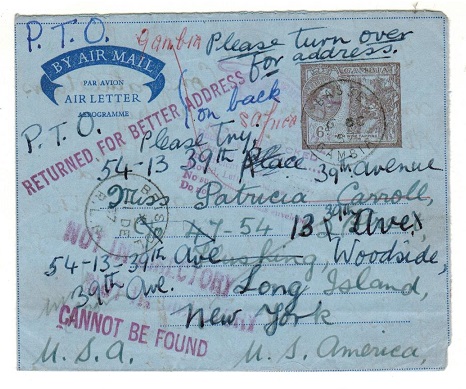 P.T.O.
Gambia
Please turn over
for address.
BY AIR MAIL
PAR AVION
AIR LETTER
AEROGRAMME
on back
RETURNED FOR BETTER ADDRESS
P.T.O.
Please Try
54-13 39th Place 39th Avenue
Miss Patricia Carroll,
47-54 13 39th Ave,
54-13-39th Ave Flushing Woodside,
NOT IN DIRECTORY
39th Ave. Long Island,
New York
CANNOT BE FOUND
U.S.A. U.S. America,